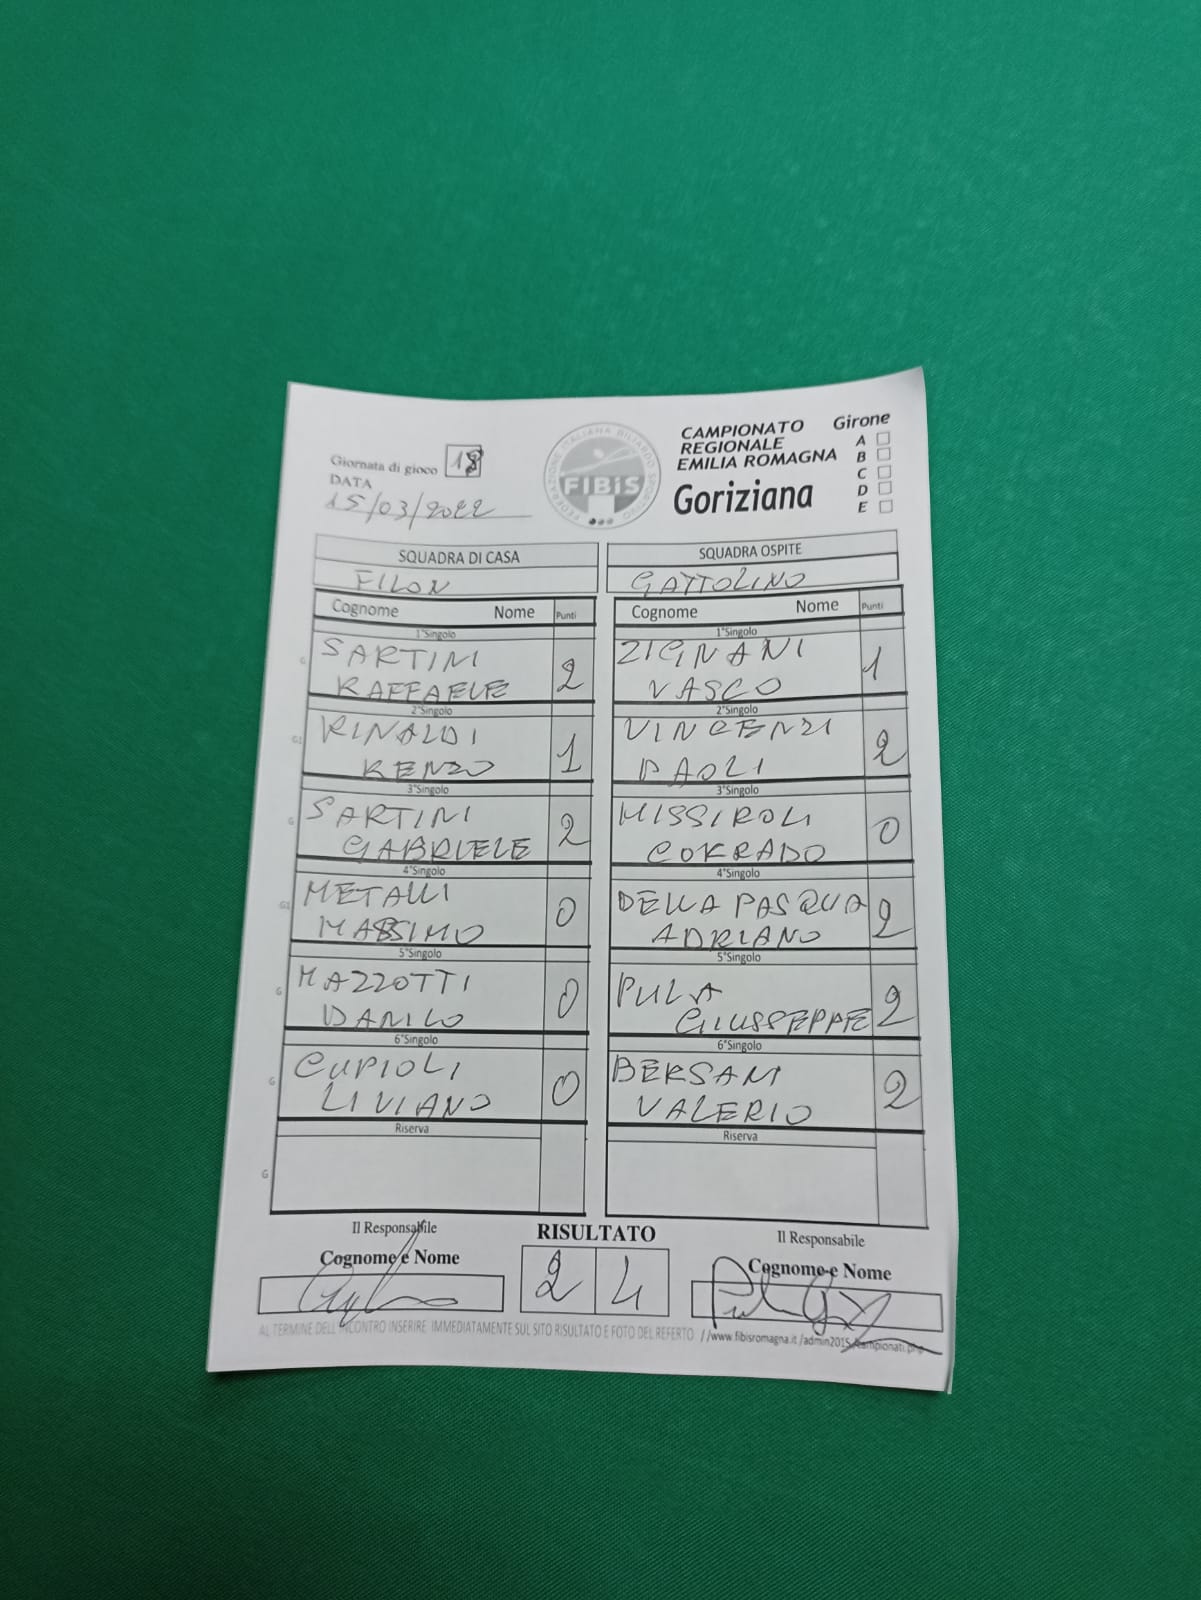 Giornata di gioco 18
DATA
15/03/2022
FEDERAZIONE ITALIANA BILIARDO SPORTIVO
FIBiS
CAMPIONATO
REGIONALE
EMILIA ROMAGNA
Goriziana
Girone
A
B
C
D
E
SQUADRA DI CASA
FILON
Cognome Nome Punti
1°Singolo
G SARTINI
RAFFAELE 2
2°Singolo
G1 RINALDI
RENZO 1
3°Singolo
G SARTINI
GABRIELE 2
4°Singolo
G1 METALLI
MASSIMO 0
5°Singolo
G MAZZOTTI
DANILO 0
6°Singolo
G CUPIOLI
LIVIANO 0
Riserva
G
SQUADRA OSPITE
GATTOLINO
Cognome Nome Punti
1°Singolo
ZIGNANI
VASCO 1
2°Singolo
VINCENZI
PAOLI 2
3°Singolo
MISSIROLI
CORRADO 0
4°Singolo
DELLA PASQUA
ADRIANO 2
5°Singolo
PULA
GIUSSEPPE 2
6°Singolo
BERSANI
VALERIO 2
Riserva
Il Responsabile
Cognome e Nome
RISULTATO
2 4
Il Responsabile
Cognome e Nome
AL TERMINE DELL'INCONTRO INSERIRE IMMEDIATAMENTE SUL SITO RISULTATO E FOTO DEL REFERTO //www.fibisromagna.it/admin2015/campionati.php